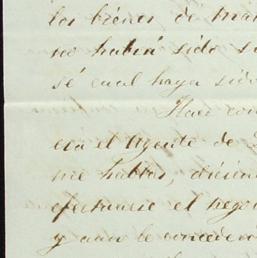 los bienes de man
no habrá sido su
sé cual haya sido
Hace con
era el Agente de
me hablar, dicien
efectuarse el nego
y aun le concederá